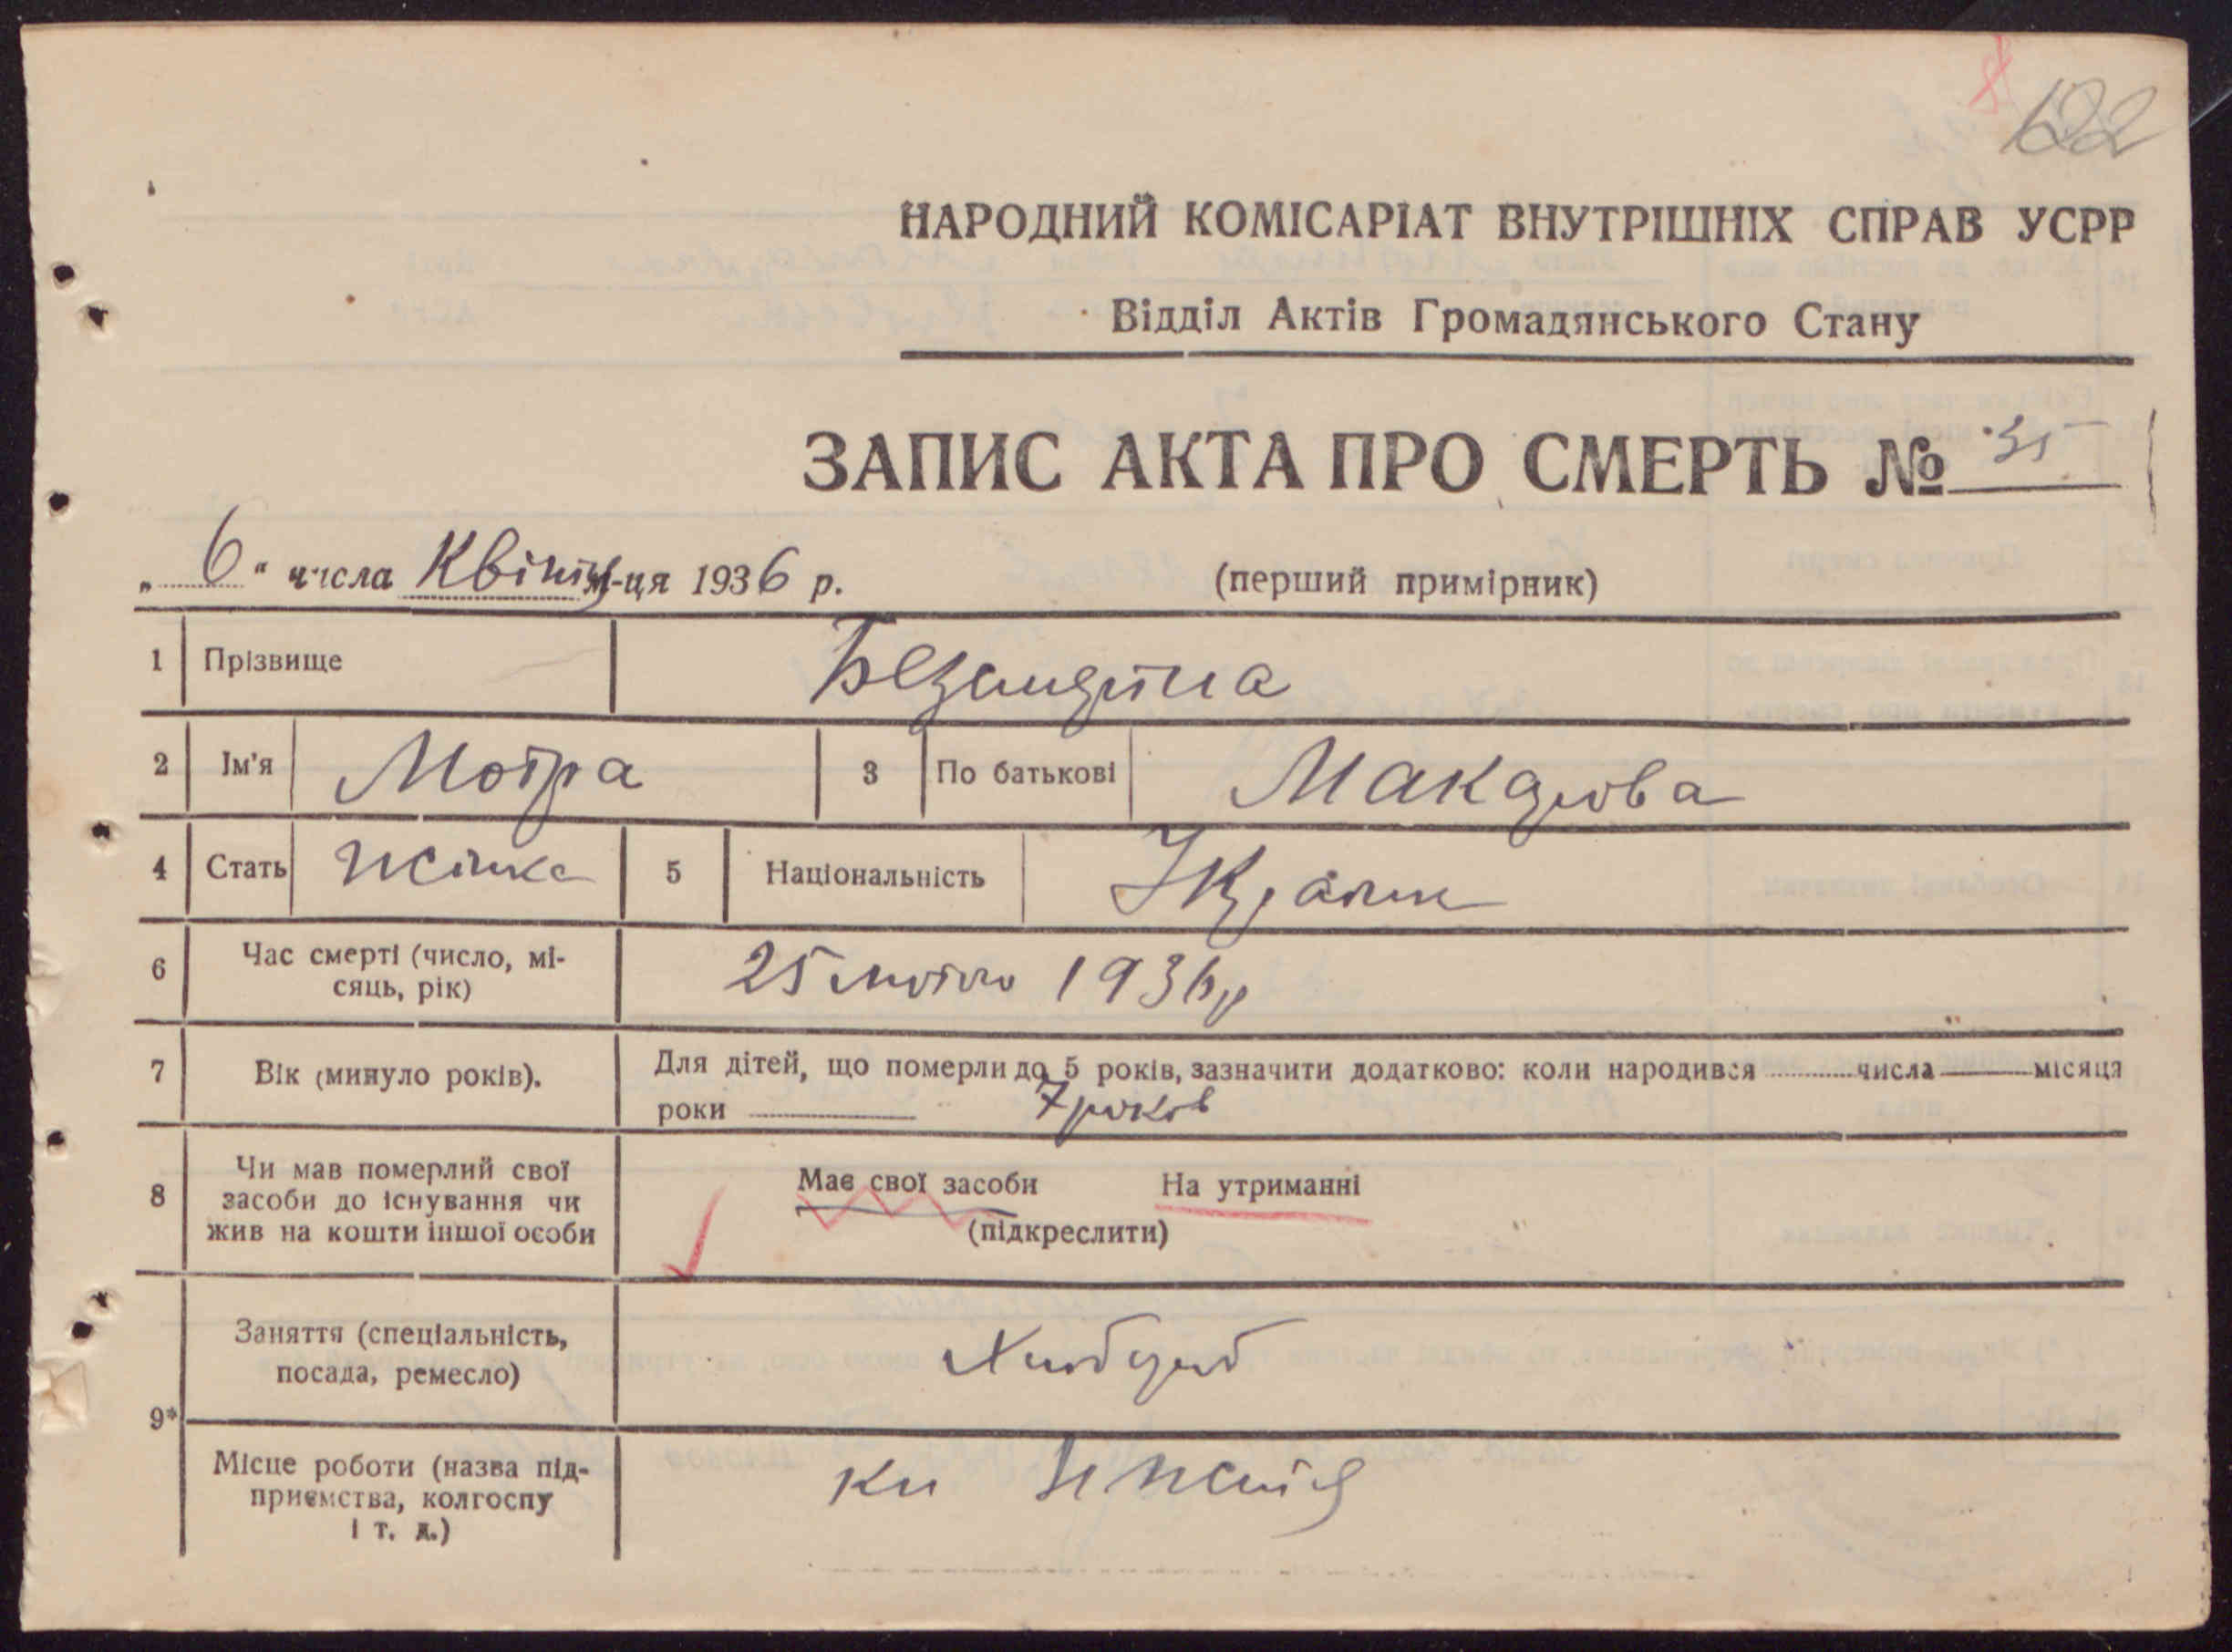 122
НАРОДНИЙ КОМІСАРІАТ ВНУТРІШНІХ СПРАВ УСРР
Відділ Актів Громадянського Стану
ЗАПИС АКТА ПРО СМЕРТЬ № 35
„ 6 " числа Квітня м-ця 1936 р. (перший примірник)
1 Прізвище
2 Ім'я Мотря 3 По батькові Макарова
4 Стать жінка 5 Національність Україн
6 Час смерті (число, мі-
сяць, рік) 25 лютого 1936 р
7 Вік (минуло років). Для дітей, що померли до 5 років, зазначити додатково: коли народився числа місяця
роки 7 років
8 Чи мав померлий свої
засоби до існування чи
жив на кошти іншої особи
Має свої засоби На утриманні
(підкреслити)
Заняття (спеціальність,
посада, ремесло) Хлібороб
9*
Місце роботи (назва під-
приємства, колгоспу
і т. д.)